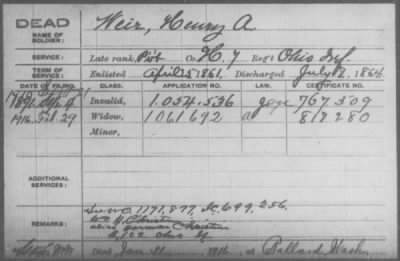 DEAD
NAME OF SOLDIER:
Weir, Henry A.
SERVICE:
Late rank, Pvt Co. H. 7 Reg't Ohio Inf.
TERM OF SERVICE:
Enlisted April 25 1861, Discharged July 1864
DATE OF FILING. CLASS. APPLICATION NO. LAW. CERTIFICATE NO.
Invalid, 1.054.536 767.509
1916. Feb. 29 Widow, 1061692 a 817280
Minor,
ADDITIONAL SERVICES:
REMARKS:
See WO 1171.877, 699.256.
Wm Y. Christ
alias German Christian
Ohio
Died Jan 31 1916, at Ballard, Wash.